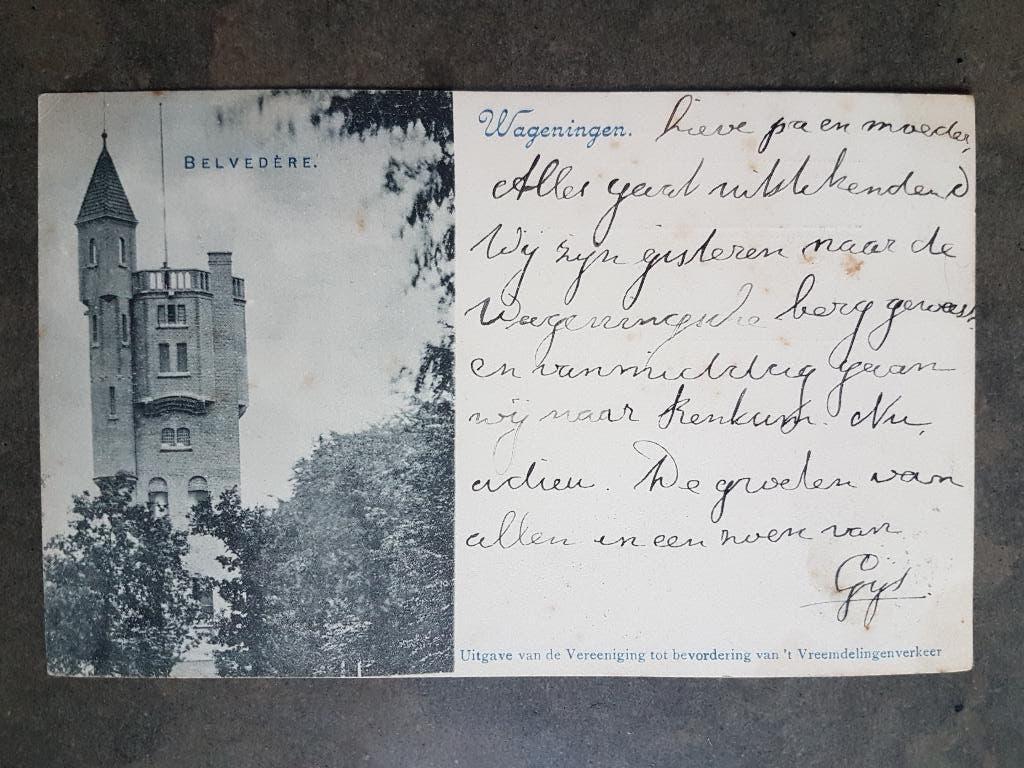 BELVEDÈRE.
Wageningen. Lieve pa en moeder,
Alles gaat uitstekend
Wij zijn gisteren naar de
Wageningsche berg geweest
en vanmiddag gaan
wij naar Renkum. Nu,
adieu. De groeten van
allen en een zoen van
Gijs.
Uitgave van de Vereeniging tot bevordering van 't Vreemdelingenverkeer